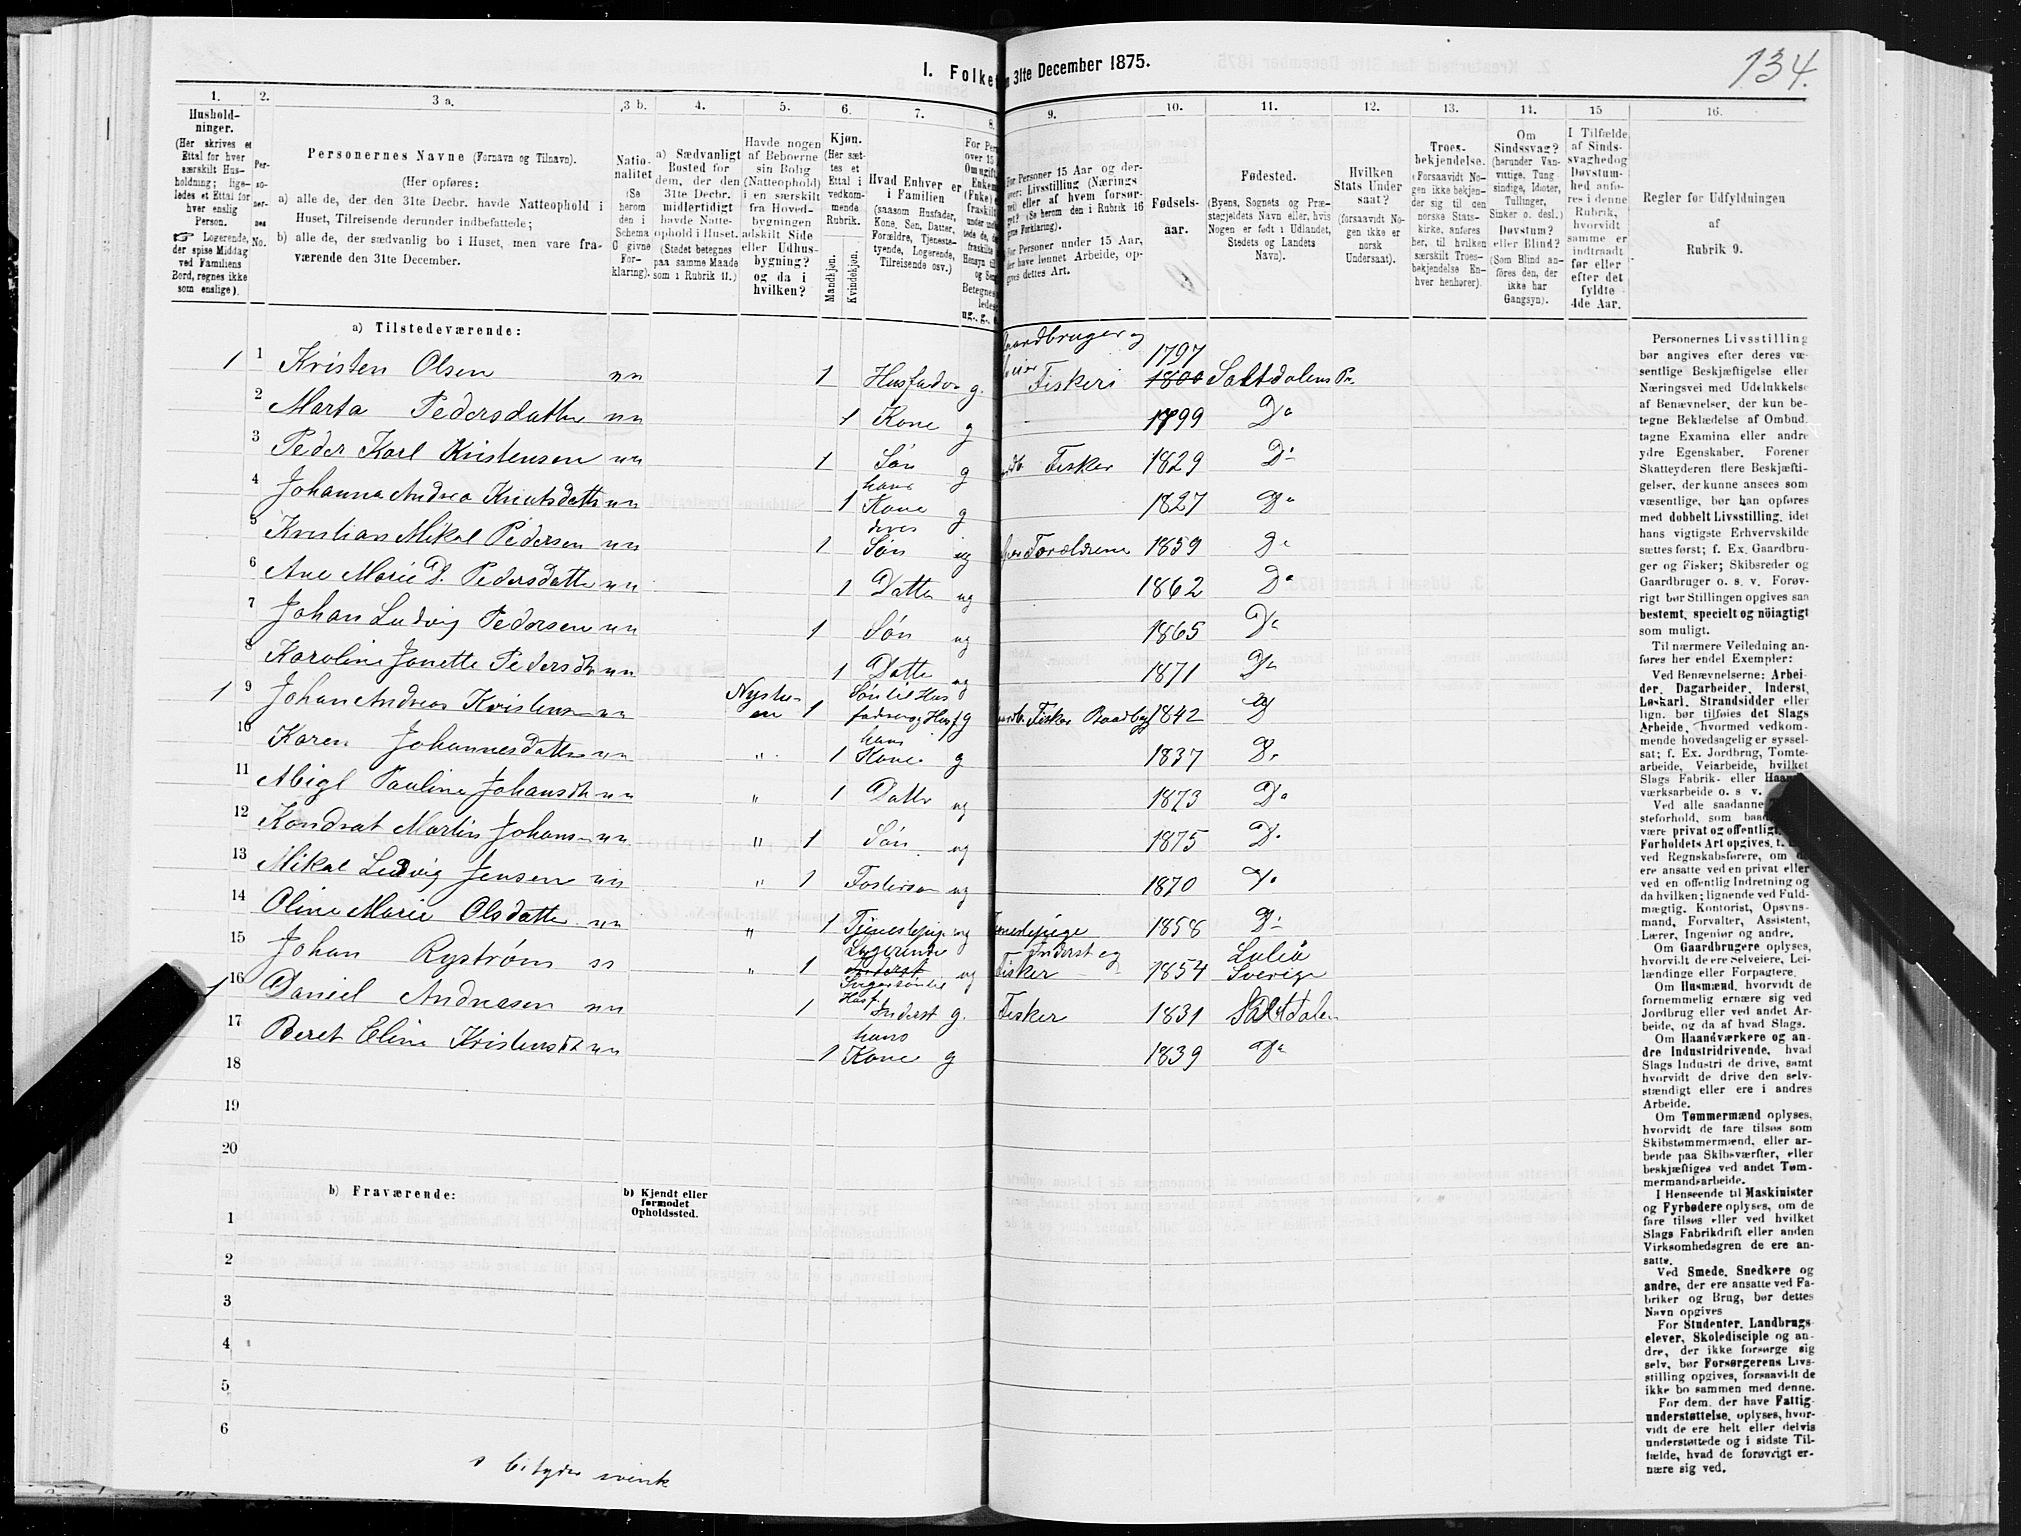 134.
I. Folket
n 31te December 1875.
1. 2. 3 a. 3 b. 4. 5. 6. 7. 8. 9. 10. 11. 12. 13. 14. 15 16.
Hushold-
ninger.
(Her skrives et
Ettal for hver
særskilt Hus-
holdning; lige-
ledes et Ettal for
hver enslig
Person.
☞ Logerende,
der spise Middag
ved Familiens
Bord, regnes ikke
som enslige).
Per-
so-
ner-
nes
No.
Personernes Navne (Fornavn og Tilnavn).
(Her opføres:
a) alle de, der den 31te Decbr. havde Natteophold i
Huset, Tilreisende derunder indbefattede;
b) alle de, der sædvanlig bo i Huset, men vare fra-
værende den 31te December.
Natio-
nalitet
(Se
herom
den i
Schema
C givne
For-
klaring).
a) Sædvanligt
Bosted for
dem, der den
31te Decbr.
midlertidigt
havde Natte-
ophold i Huset.
(Stedet betegnes
paa samme Maade
som i Rubrik 11.)
Havde nogen
af Beboerne
sin Bolig
(Natteophold)
i en særskilt
fra Hoved-
bygningen
adskilt Side
eller Udhus-
bygning?
og da i
hvilken?
Kjøn.
(Her sæt-
tes et
Ettal i
vedkom-
mende
Rubrik.
Mandkjøn.
Kvindekjøn.
Hvad Enhver er
i Familien
(saasom Husfader,
Kone, Søn, Datter,
Forældre, Tjeneste-
tyende, Logerende,
Tilreisende osv.)
For Personer 15 Aar og der-
over: Livsstilling (Nærings
vei) eller af hvem forsør-
get? (Se herom den i Rubrik 16
givne Forklaring).
For Personer under 15 Aar,
der have lønnet Arbeide, op-
gives dettes Art.
Fødsels-
aar.
Fødested.
(Byens, Sognets og Præ-
stegjeldets Navn eller, hvis
Nogen er født i Udlandet,
Stedets og Landets
Navn).
Hvilken
Stats Under
saat?
(forsaavidt No-
gen ikke er
norsk
Undersaat).
Troes-
bekjendelse.
(Forsaavidt No-
gen ikke bekjen-
der sig til den
norske Stats-
kirke, anføres
her, til hvilken
særskilt Troes-
bekjendelse En-
hver henhører).
Om
Sindssvag?
(herunder Van-
vittige, Tung
sindige, Idioter,
Tullinger,
Sinker o. desl.)
Døvstum?
eller Blind?
(Som Blind an-
føres den, der
ikke har
Gangsyn).
I Tilfælde
af Sinds-
svaghedog
Døvstum-
hed anfø-
res i denne
Rubrik,
hvorvidt
samme er
indtrnadt
før eller
efter det
fyldte
4de Aar.
Regler for Udfyldningen
af
Rubrik 9.
a) Tilstedeværende:
1 1 Kristen Olsen nn 1 Husfader g. Gaardbruger og Fiskeri 1797 1800 Saltdalens Pr.
2 Marta Pedersdatter nn 1 Kone g 1799 Do
3 Peder Karl Kristensen nn 1 Søn g Fisker 1829 Do
4 Johanna Andrea Knutsdatter nn 1 hans Kone g 1827 Do
5 Kristian Mikal Pedersen nn 1 deres Søn ug Forældrene 1859 Do
6 Ane Marie D. Pedersdatter nn 1 Datter ug 1862 Do
7 Johan Ludvig Pedersen nn 1 Søn ug 1865 Do
8 Karoline Janette Pedersdtr nn 1 Datter ug 1871 Do
1 9 Johan Andreas Kristensen nn Nystuen 1 Søn til Husfaderen og Husf g Fisker 1842 Do
10 Karen Johannesdatter nn " 1 hans Kone g 1837 Do
11 Abigl Pauline Johansdtr nn " 1 Datter ug 1873 Do
12 Kondrat Martin Johansen nn " 1 Søn ug 1875 Do
13 Mikal Ludvig Jensen nn " 1 Fostersøn ug 1870 Do
14 Oline Marie Olsdatter nn " 1 Tjenestepige ug Tjenestepige 1858 Do
15 Johan Rystrøm ss " 1 Logerende Inderst ug Inderst og Fisker 1854 Luleå Sverige
1 16 Daniel Andreasen nn 1 Svigersøn til Husf Inderst g. Fisker 1831 Saltdalen
17 Beret Eline Kristensdtr nn 1 hans Kone g 1839 Do
18
19
20
b) Fraværende:
b) Kjendt eller
formodet
Opholdssted.
1
2
3
4
5
6
s betyder svensk
Personernes Livsstilling
bør angives efter deres væ-
sentlige Beskjæftigelse eller
Næringsvei med Udelukkelse
af Benævnelser, der kun be-
tegne Beklædelse af Ombud,
tagne Examina eller andre
ydre Egenskaber. Forener
Skatteyderen flere Beskjæfti-
gelser, der kunne ansees som
væsentlige, bør han opføres
med dobbelt Livsstilling, idet
hans vigtigste Erhvervskilde
sættes først; f. Ex. Gaardbru-
ger og Fisker; Skibsreder og
Gaardbruger o. s. v. Forøv-
rigt bør Stillingen opgives saa
bestemt, specielt og nöiagtigt
som muligt.
Til nærmere Veiledning an-
føres her endel Exempler:
Ved Benævnelserne: Arbei-
der, Dagarbeider, Inderst,
Løskarl, Strandsidder eller
lign. bør tilføies det Slags
Arbeide, hvormed vedkom-
mende hovedsagelig er syssel-
sat; f. Ex. Jordbrug, Tomte-
arbeide, Veiarbeide, hvilket
Slags Fabrik- eller Haand-
værksarbeide o. s. v.
Ved alle saadanne
steforhold, som baade
være privat og offentligt,
Forholdets Art opgives, t.
ved Regnskabsførere, om de
ere ansatte ved en privat eller
ved en offentlig Indretning og
da hvilken; lignende ved Fuld-
mægtig, Kontorist, Opsyns-
mand, Forvalter, Assistent,
Lærer, Ingeniør og andre.
Om Gaardbrugere oplyses,
hvorvilt de ere Selveiere, Lei-
lændinge eller Forpagtere.
Om Husmænd, hvorvidt de
fornemmelig ernære sig ved
Jordbrug eller ved andet Ar-
beide, og da af hvad Slags.
Om Haandværkere og an-
dre Industridrivende, hvad
Slags Industri de drive, samt
hvorvidt de drive den selv-
stændigt eller ere i andres
Arbeide.
Om Tømmermænd oplyses,
hvorvidt de fare tilsøs som
Skibstømmermænd, eller ar-
beide paa Skibsværfter, eller
beskjæftiges ved andet Tøm-
mermandsarbeide.
I Henseende til Maskinister
og Fyrbødere oplyses, om de
fare tilsøs eller ved hvilket
Slags Fabrikdrift eller anden
Virksomhedsgren de ere an-
satte.
Ved Smede, Snedkere og
andre, der ere ansatte ved Fa-
briker og Brug, bør dettes
Navn opgives
For Studenter, Landbrugs-
elever, Skoledisciple og an-
dre, der ikke forsørge sig
selv, bør Forsørgerens Livs-
stilling opgives, forsaavilt de
ikke bo sammen med denne.
For dem, der have Fattig-
understøttelse, oplyses, hvor-
vidt de ere helt eller delvis
understøttede og i sidste Til-
fælde, hvad de forøvrigt er-
nære sig ved.